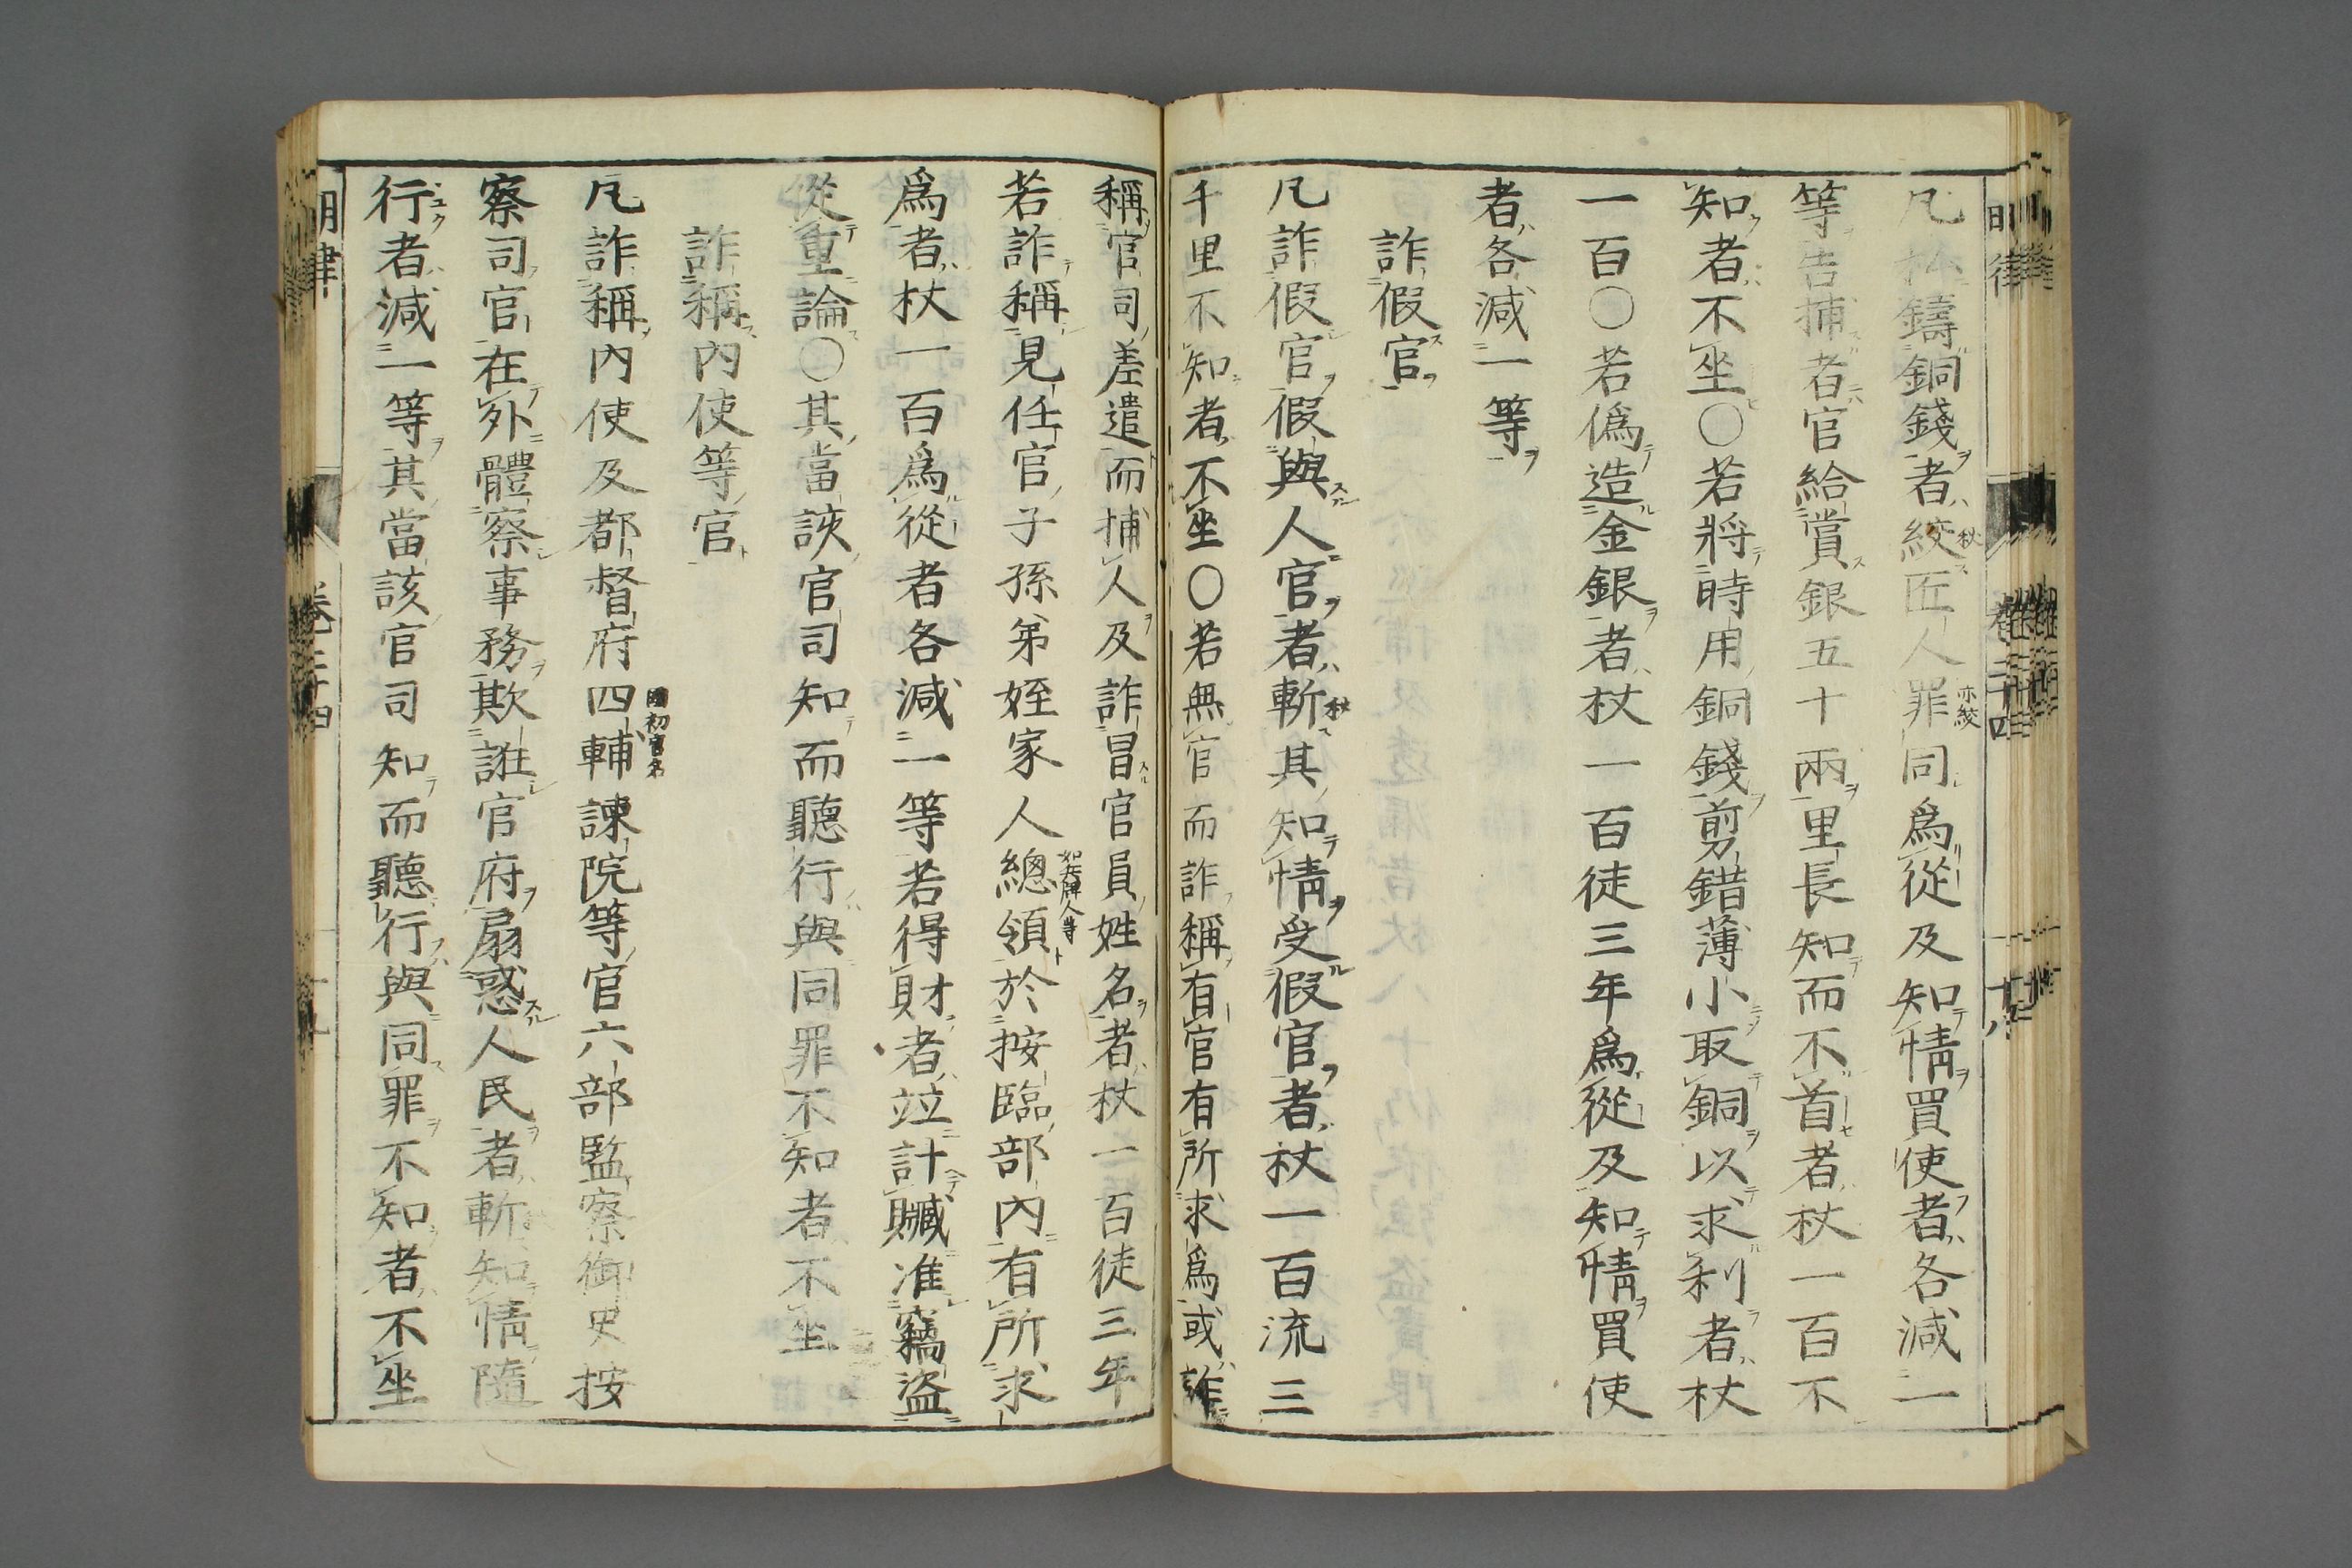 凡私鑄銅錢者絞匠人罪同爲從及知情買使者各減一
秋
亦絞
等告捕者官給賞銀五十兩里長知而不首者杖一百不
知者不坐○若將時用銅錢剪錯薄小取銅以求利者杖
一百○若僞造金銀者杖一百徒三年爲從及知情買使
者各減一等
詐假官
凡詐假官假與人官者斬其知情受假官者杖一百流三
秋
千里不知者不坐○若無官而詐稱有官有所求爲或詐
稱官司差遣而捕人及詐冒官員姓名者杖一百徒三年
若詐稱見任官子孫弟姪家人總領於按臨部內有所求
爲者杖一百爲從者各減一等若得財者竝計贓准竊盜
從重論○其當該官司知而聽行與同罪不知者不坐
詐稱內使等官
凡詐稱內使及都督府四輔諫院等官六部監察御史按
國初官名
察司官在外體察事務欺誑官府扇惑人民者斬知情隨
行者減一等其當該官司知而聽行與同罪不知者不坐
明律
卷二十四